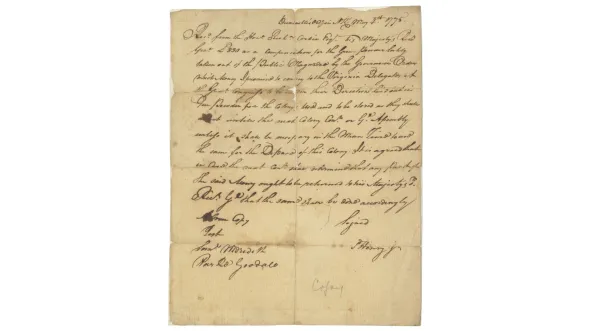 Doncastle's Ordinary N. Kt May 4th 1775
Recd from the Honl Richd Corbin Esqr his Majesty's Recr
Genl £330 as a compensation for the Gun powder lately
taken out of the Public Magazine by the Governors Order
which Money I promise to convey to the Virginia Delegates at
the Genl Congress to be under their Direction laid out in
Gun Powder for the Colony's Use and to be stored as they shall
direct untill the next Colony Convn or Gl Assembly
unless it shall be necessary in the Mean Time to use
the same for the Defence of this Colony It is agreed that
in Case the next Convn shall determine that any part of
the said Money ought to be returned to his Majesty's
Recr Gl that the same shall be done accordingly
A True Copy Signed
Test P Henry jr
Saml Meredith
Parke Goodall
Copy